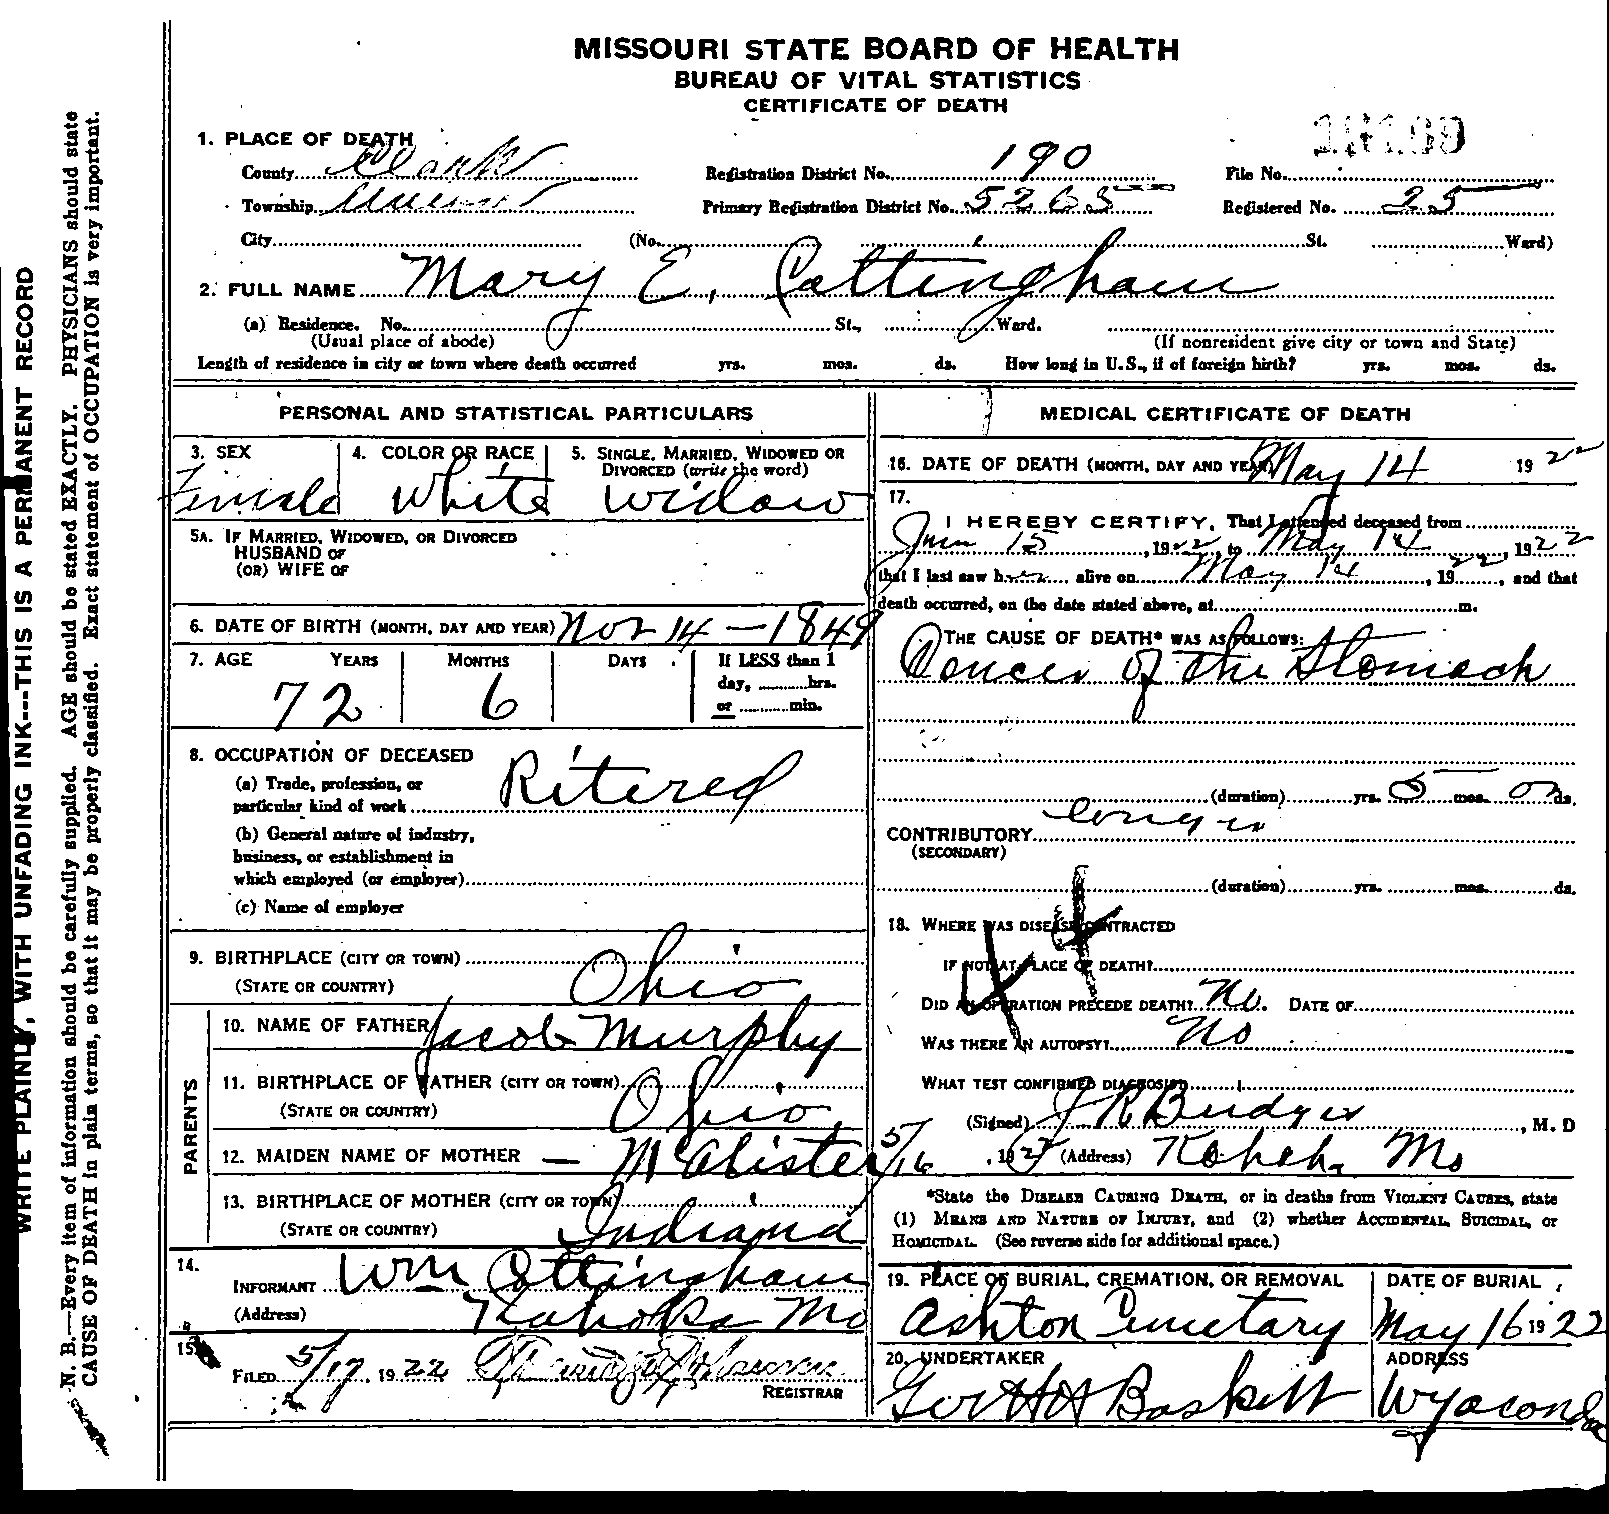 MISSOURI STATE BOARD OF HEALTH
BUREAU OF VITAL STATISTICS
CERTIFICATE OF DEATH
1. PLACE OF DEATH
County Clark Registration District No. 190 File No.
Township Primary Registration District No. 5263 Registered No. 25
City (No. St. Ward)
2. FULL NAME Mary E. Cottingham
(a) Residence. No. St., Ward.
(Usual place of abode) (If nonresident give city or town and State)
Length of residence in city or town where death occurred yrs. mos. ds. How long in U.S., if of foreign birth? yrs. mos. ds.
PERSONAL AND STATISTICAL PARTICULARS
3. SEX 4. COLOR OR RACE 5. SINGLE, MARRIED, WIDOWED OR
DIVORCED (write the word)
Female White Widow
5A. IF MARRIED, WIDOWED, OR DIVORCED
HUSBAND OF
(OR) WIFE OF
6. DATE OF BIRTH (MONTH, DAY AND YEAR) Nov 14 - 1849
7. AGE YEARS MONTHS DAYS If LESS than 1
day, hrs.
or min.
72 6
8. OCCUPATION OF DECEASED
(a) Trade, profession, or
particular kind of work Ritered
(b) General nature of industry,
business, or establishment in
which employed (or employer)
(c) Name of employer
9. BIRTHPLACE (CITY OR TOWN)
(STATE OR COUNTRY) Ohio
PARENTS
10. NAME OF FATHER Jacob Murphy
11. BIRTHPLACE OF FATHER (CITY OR TOWN)
(STATE OR COUNTRY) Ohio
12. MAIDEN NAME OF MOTHER — McAlister
13. BIRTHPLACE OF MOTHER (CITY OR TOWN)
(STATE OR COUNTRY) Indiana
14.
INFORMANT Wm Cottingham
(Address) Kahoka Mo
15.
FILED 5/17, 1922
REGISTRAR
MEDICAL CERTIFICATE OF DEATH
16. DATE OF DEATH (MONTH, DAY AND YEAR) May 14 1922
17.
I HEREBY CERTIFY, That I attended deceased from
15, 1922, to May 14, 1922
that I last saw her alive on May 14, 1922, and that
death occurred, on the date stated above, at m.
THE CAUSE OF DEATH* WAS AS FOLLOWS:
Cancer of the Stomach
(duration) yrs. 5 mos. ds.
CONTRIBUTORY
(SECONDARY)
(duration) yrs. mos. ds.
18. WHERE WAS DISEASE CONTRACTED
IF NOT AT PLACE OF DEATH?
44
DID AN OPERATION PRECEDE DEATH? No. DATE OF
WAS THERE AN AUTOPSY? No
WHAT TEST CONFIRMED DIAGNOSIS
(Signed) J R Bridges, M. D
5/16, 192 (Address) Mo
*State the DISEASE CAUSING DEATH, or in deaths from VIOLENT CAUSES, state
(1) MEANS AND NATURE OF INJURY, and (2) whether ACCIDENTAL, SUICIDAL, or
HOMICIDAL. (See reverse side for additional space.)
19. PLACE OF BURIAL, CREMATION, OR REMOVAL DATE OF BURIAL
Ashton Cemetary May 16 1922
20. UNDERTAKER ADDRESS
Baskett Wyaconda
WRITE PLAINLY, WITH UNFADING INK---THIS IS A PERMANENT RECORD
N. B.—Every item of information should be carefully supplied. AGE should be stated EXACTLY. PHYSICIANS should state
CAUSE OF DEATH in plain terms, so that it may be properly classified. Exact statement of OCCUPATION is very important.